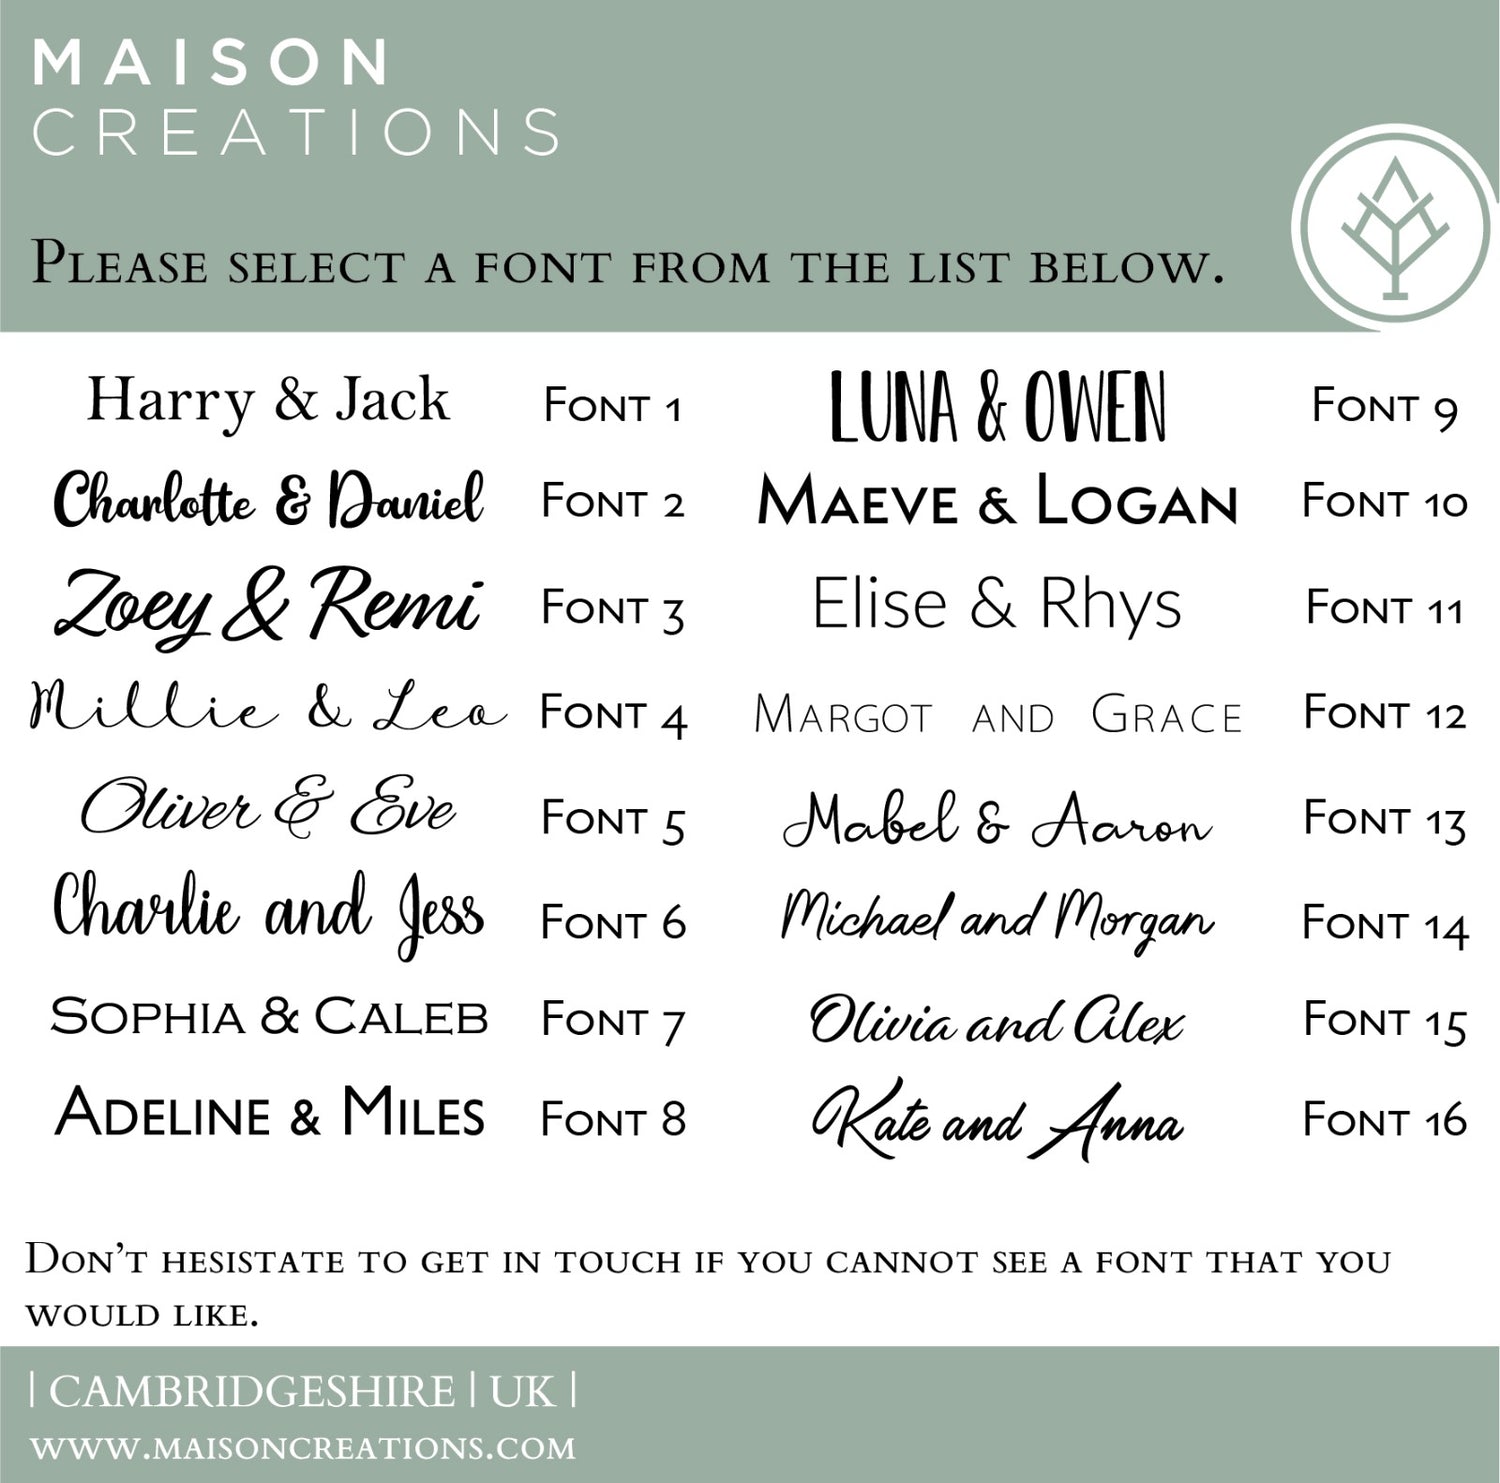 MAISON
CREATIONS
Please select a font from the list below.
Harry & Jack Font 1
Charlotte & Daniel Font 2
Zoey & Remi Font 3
Millie & Leo Font 4
Oliver & Eve Font 5
Charlie and Jess Font 6
Sophia & Caleb Font 7
Adeline & Miles Font 8
LUNA & OWEN Font 9
Maeve & Logan Font 10
Elise & Rhys Font 11
Margot and Grace Font 12
Mabel & Aaron Font 13
Michael and Morgan Font 14
Olivia and Alex Font 15
Kate and Anna Font 16
Don't hesistate to get in touch if you cannot see a font that you
would like.
| CAMBRIDGESHIRE | UK |
www.maisoncreations.com